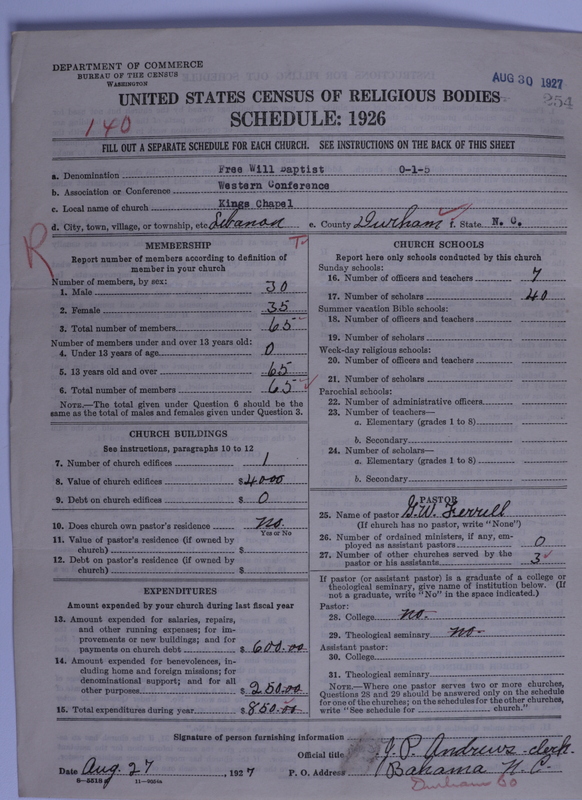 DEPARTMENT OF COMMERCE
BUREAU OF THE CENSUS
WASHINGTON
AUG 30 1927
254
UNITED STATES CENSUS OF RELIGIOUS BODIES
SCHEDULE: 1926
140
FILL OUT A SEPARATE SCHEDULE FOR EACH CHURCH. SEE INSTRUCTIONS ON THE BACK OF THIS SHEET
a. Denomination Free Will Baptist 0-1-5
b. Association or Conference Western Conference
c. Local name of church Kings Chapel
d. City, town, village, or township, etc. Lebanon e. County Durham f. State N. C.
R
MEMBERSHIP
Report number of members according to definition of
member in your church
Number of members, by sex:
1. Male 30
2. Female 35
3. Total number of members 65
Number of members under and over 13 years old:
4. Under 13 years of age 0
5. 13 years old and over 65
6. Total number of members 65
NOTE.—The total given under Question 6 should be the
same as the total of males and females given under Question 3.
CHURCH BUILDINGS
See instructions, paragraphs 10 to 12
7. Number of church edifices 1
8. Value of church edifices $4000
9. Debt on church edifices $ 0
10. Does church own pastor's residence no.
Yes or No
11. Value of pastor's residence (if owned by
church) $
12. Debt on pastor's residence (if owned by
church) $
EXPENDITURES
Amount expended by your church during last fiscal year
13. Amount expended for salaries, repairs,
and other running expenses; for im-
provements or new buildings; and for
payments on church debt $ 600.00
14. Amount expended for benevolences, in-
cluding home and foreign missions; for
denominational support; and for all
other purposes $ 250.00
15. Total expenditures during year $ 850.00
CHURCH SCHOOLS
Report here only schools conducted by this church
Sunday schools:
16. Number of officers and teachers 7
17. Number of scholars 40
Summer vacation Bible schools:
18. Number of officers and teachers
19. Number of scholars
Week-day religious schools:
20. Number of officers and teachers
21. Number of scholars
Parochial schools:
22. Number of administrative officers
23. Number of teachers—
a. Elementary (grades 1 to 8)
b. Secondary
24. Number of scholars—
a. Elementary (grades 1 to 8)
b. Secondary
PASTOR
25. Name of pastor G.W. Ferrell
(If church has no pastor, write "None")
26. Number of ordained ministers, if any, em-
ployed as assistant pastors 0
27. Number of other churches served by the
pastor or his assistants 3
If pastor (or assistant pastor) is a graduate of a college or
theological seminary, give name of institution below. (If
not a graduate, write "No" in the space indicated.)
Pastor:
28. College no.
29. Theological seminary no-
Assistant pastor:
30. College
31. Theological seminary
NOTE.—Where one pastor serves two or more churches,
Questions 28 and 29 should be answered only on the schedule
for one of the churches; on the schedules for the other churches,
write "See schedule for church."
Signature of person furnishing information
Official title J. P. Andrews - clerk
Date Aug. 27, 1927 P. O. Address Bahama N. C.
Durham Co
8-5518 11-9050a